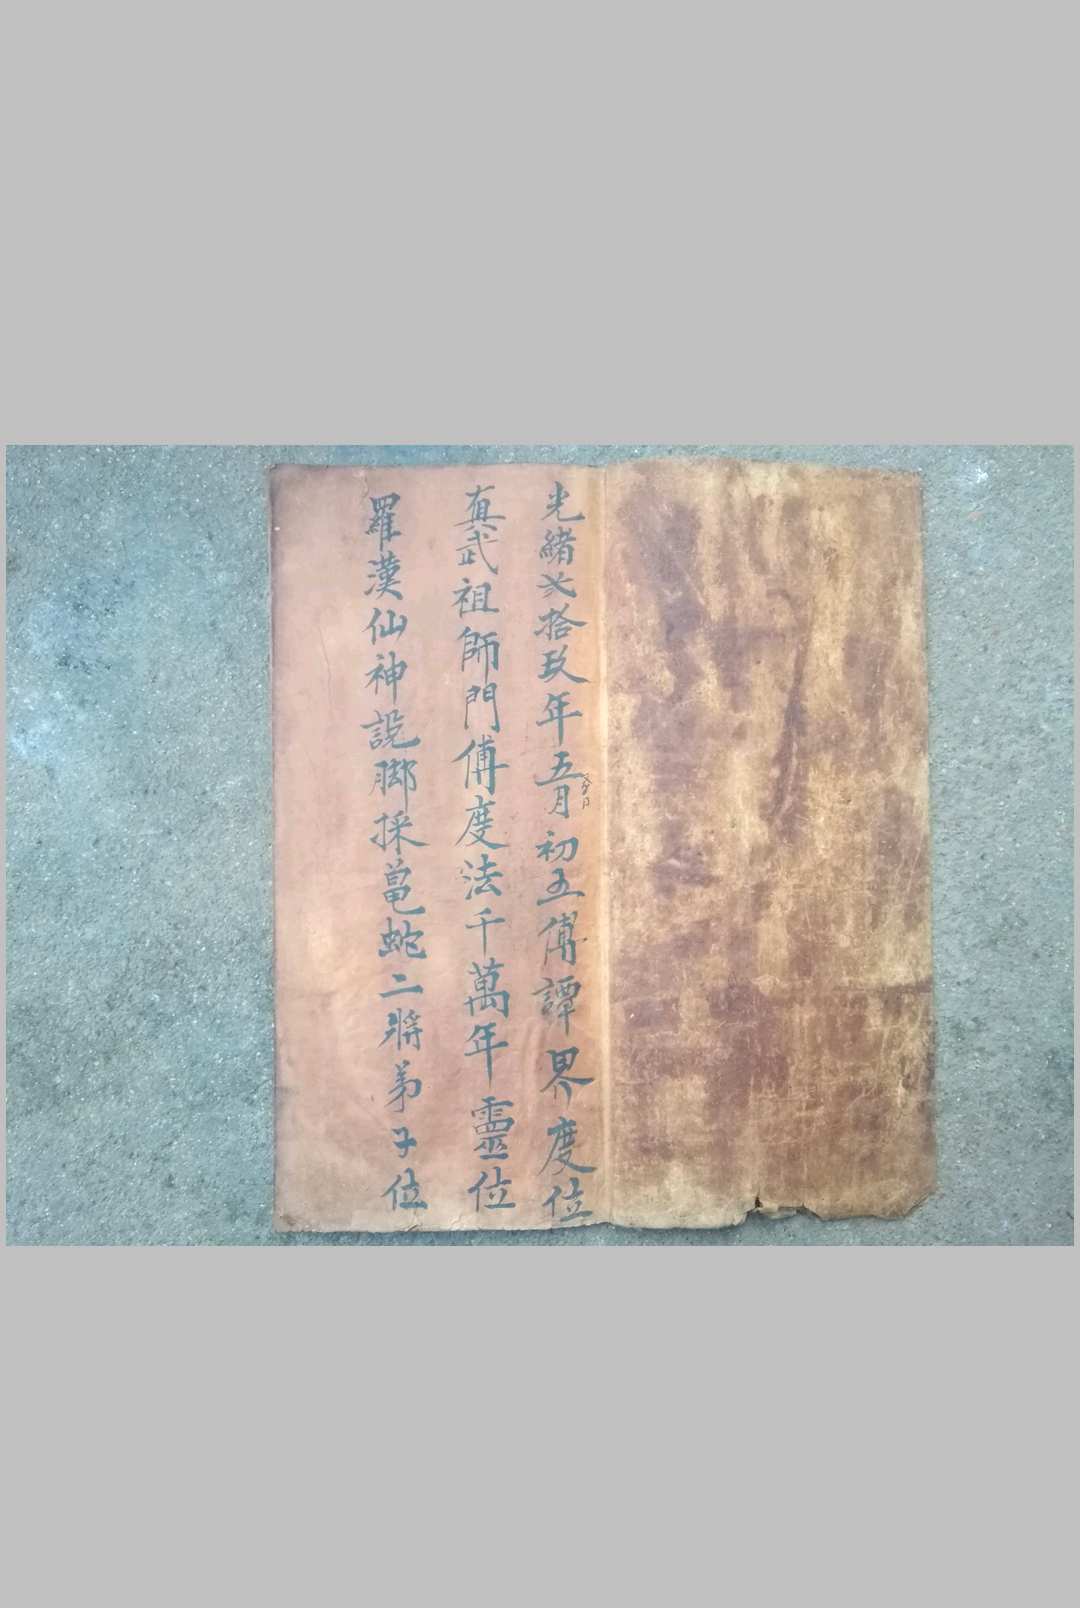 光緒弍拾玖年五月初五傅譚界度位
真武祖師門傅度法千萬年靈位
羅漢仙神説脚採黽蛇二將弟子位